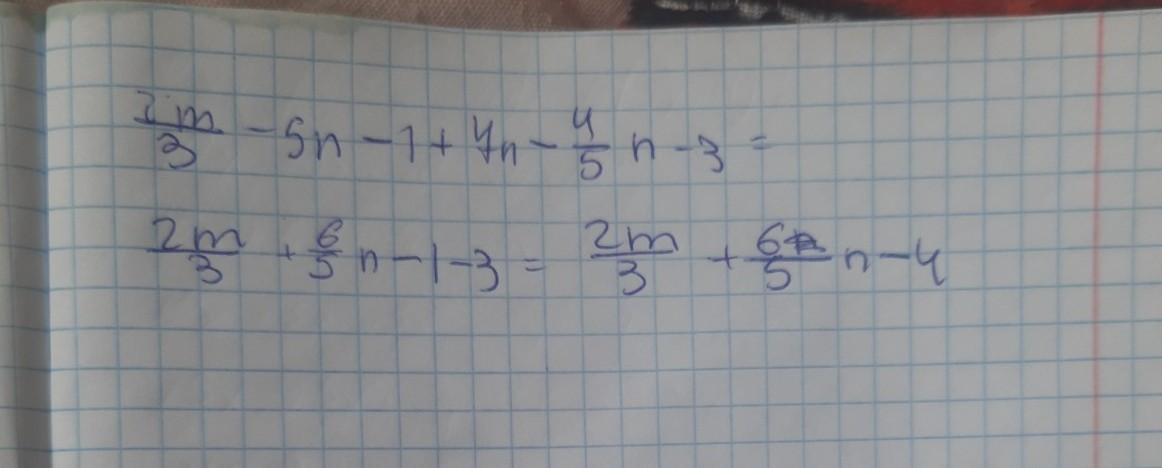 2m/3 - 5n - 1 + 7n - 4/5 n - 3 =
2m/3 + 6/5 n - 1 - 3 = 2m/3 + 6/5 n - 4